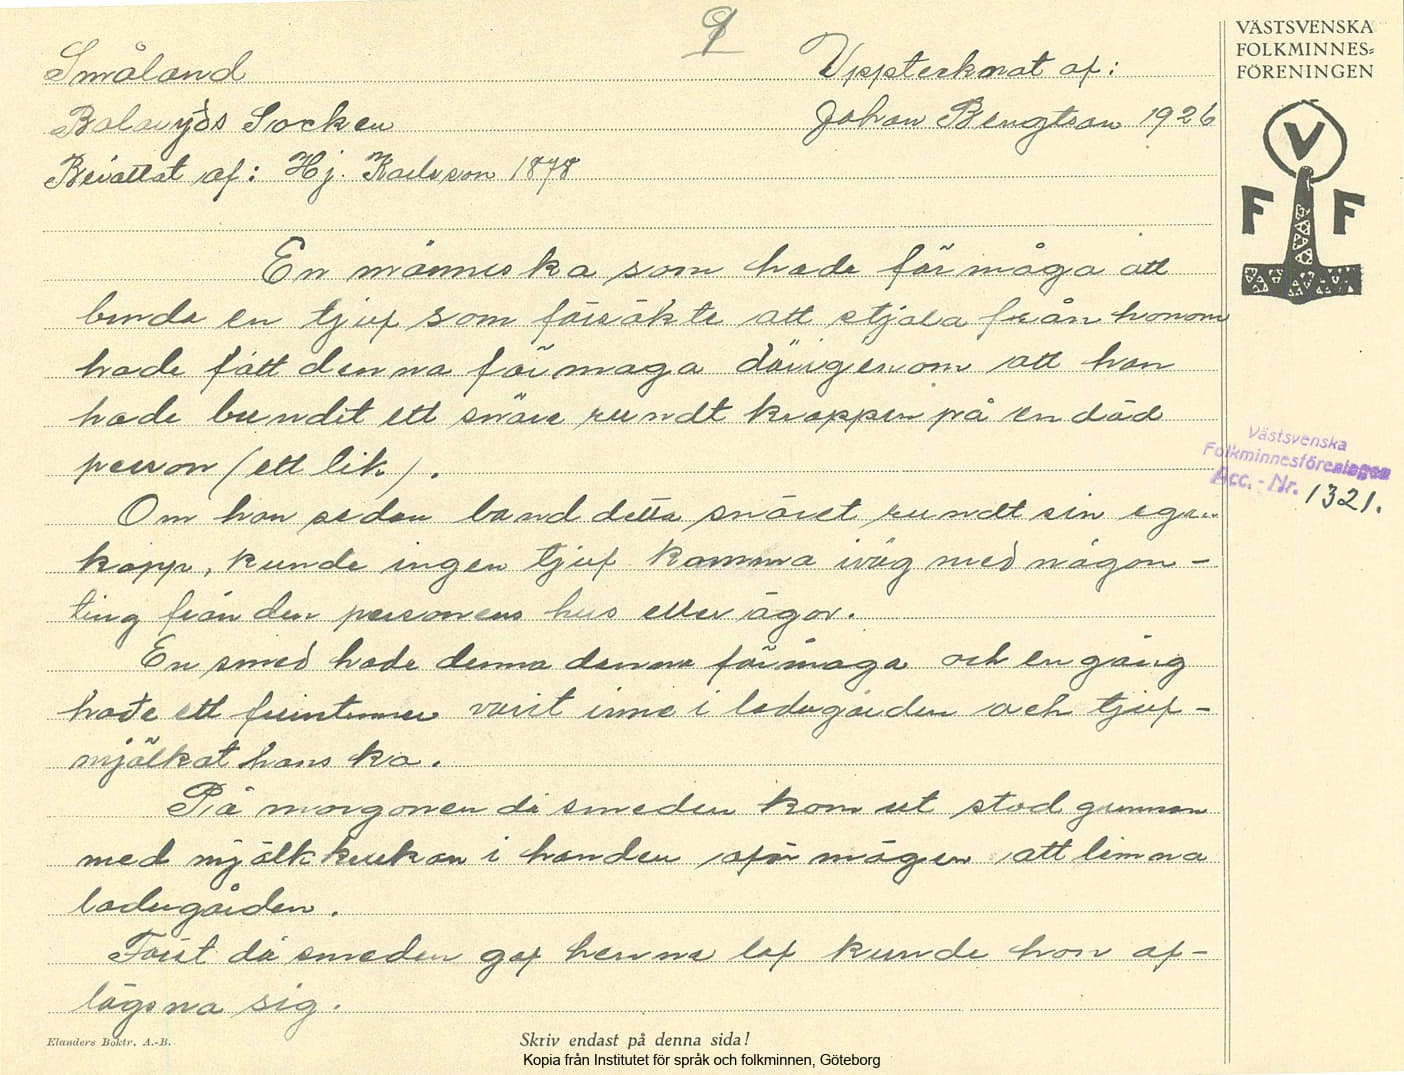 9
Småland
Upptecknat af:
Bolmsö Socken
Johan Bengtson 1926
Berättat af: Hj. Karlsson 1878
VÄSTSVENSKA
FOLKMINNES=
FÖRENINGEN
V
F F
En människa som hade förmåga att
binda en tjuf som försökte att stjäla från honom
hade fått denna förmaga därigenom att han
hade bundit ett snäre rundt kroppen på en död
person (ett lik).
Om han sedan band detta snäret rundt sin egen
kopp, kunde ingen tjuf komma iväg med någon-
ting från den personens hus eller ägor.
En smed hade denna denna förmåga och en gång
hade ett fruntimmer varit inne i ladugården och tjuf-
mjölkat hans ko.
På morgonen då smeden kom ut stod gumman
med mjölkkrukan i handen oförmögen att lämna
ladugården.
Först då smeden gaf henne lof kunde hon af-
lägsna sig.
Västsvenska
Folkminnesföreningen
Acc. - Nr. 1321.
Elanders Boktr. A.-B.
Skriv endast på denna sida!
Kopia från Institutet för språk och folkminnen, Göteborg